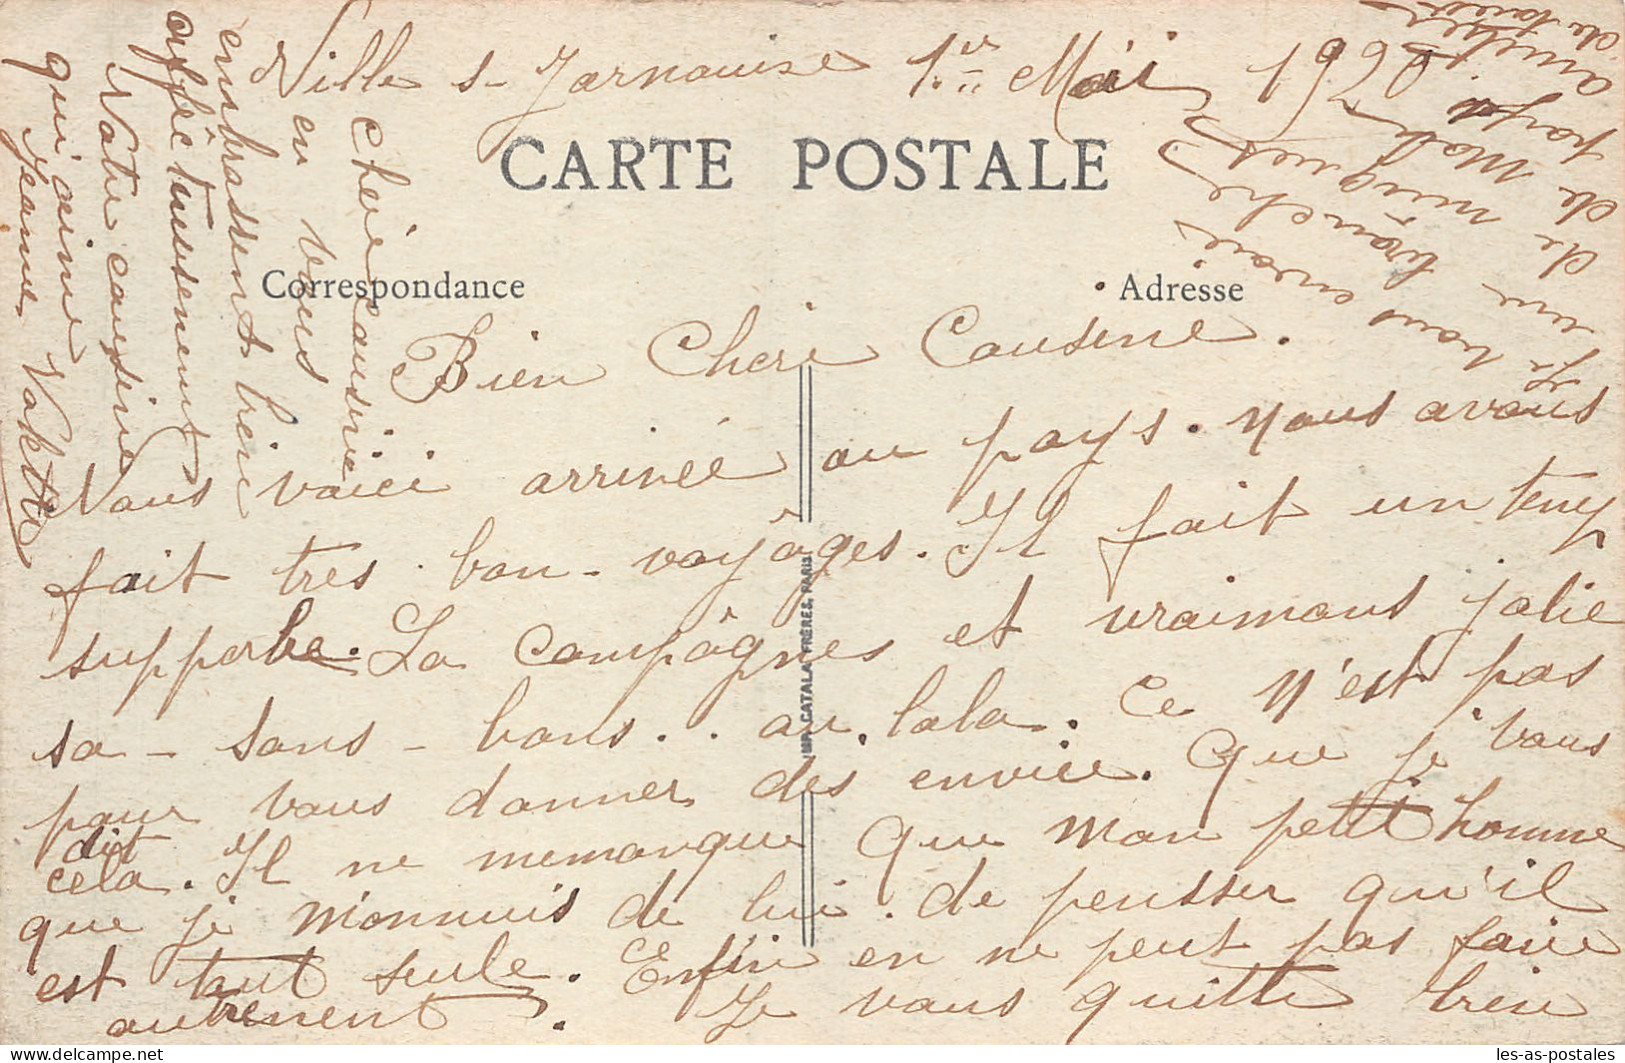 Ville s- Jarnouise 1er Mai 1920
CARTE POSTALE
Correspondance
Adresse
Bien Cheri Cousine.
Nous voici arrivée au pays. Nous avons
fait tres bon - voyâges. Il fait un temp
supperbe. La Compâgnes et vraimans jolie
sa - sans - bons.. au, lala. Ce n'est pas
pour vous donner des envice. Que je vous
dit
cela. Il ne memanque que mon petit homme
que je m'onnuis de lui. de pensser qu'il
est tout seule. Enfin en ne peut pas faire
autrement. Je vous quitte bien
chère cousine
en vous
embrassent bien
affectuesement
Votre cousine
qui aime
Jeanne Vakette
Je vous envoie
une branche
de muguest
de Mob
pays
IMP. CATALA FRÈRES, PARIS
les-as-postales
© delcampe.net